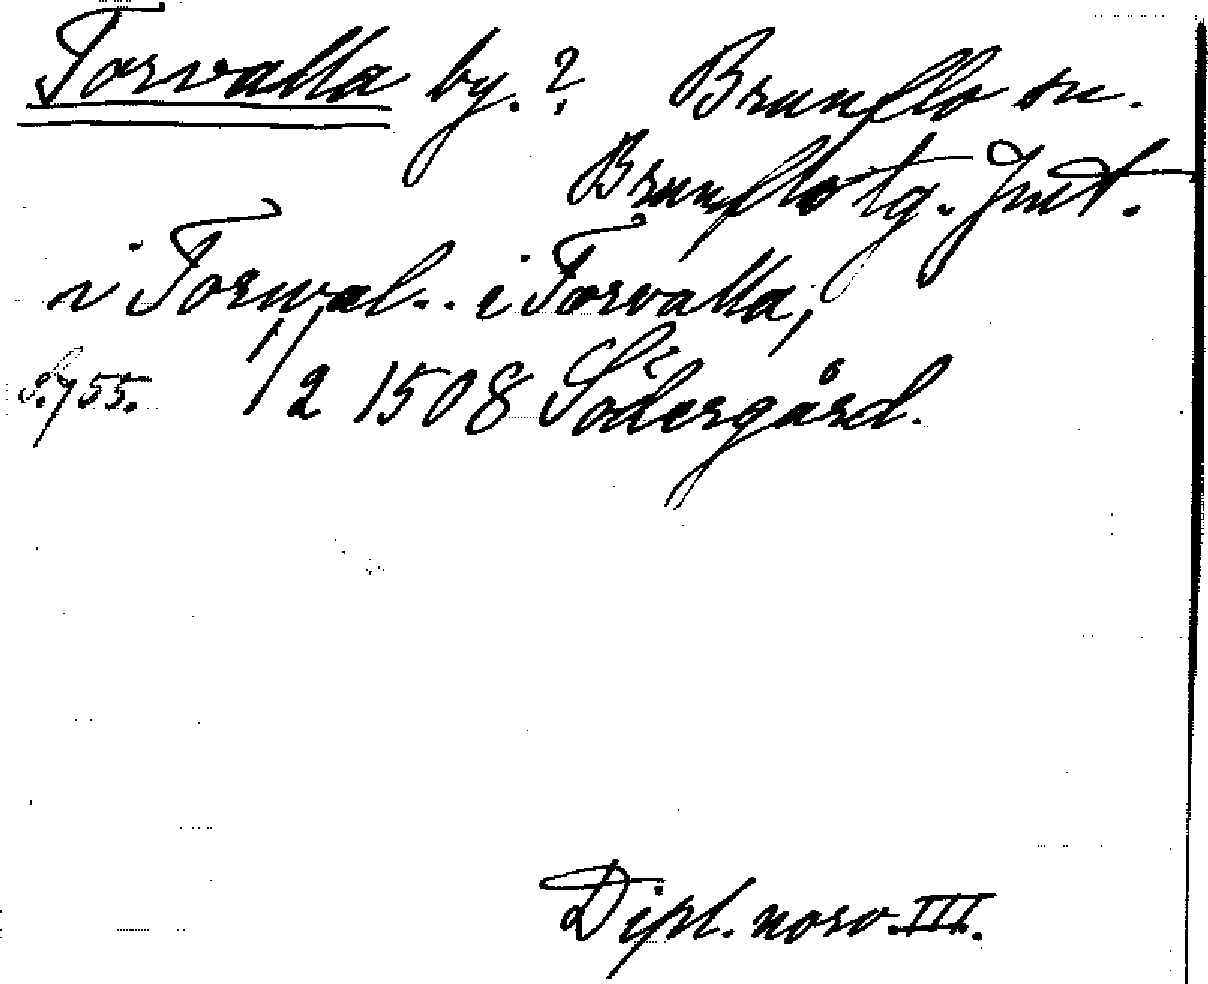 Torvalla by. ? Brunflo sn.
Brunflo tg. Jmt.
i Torwal.. i Torvalla,
S. 755. 1/2 1508 Södergård.
Dipl. norv. III.